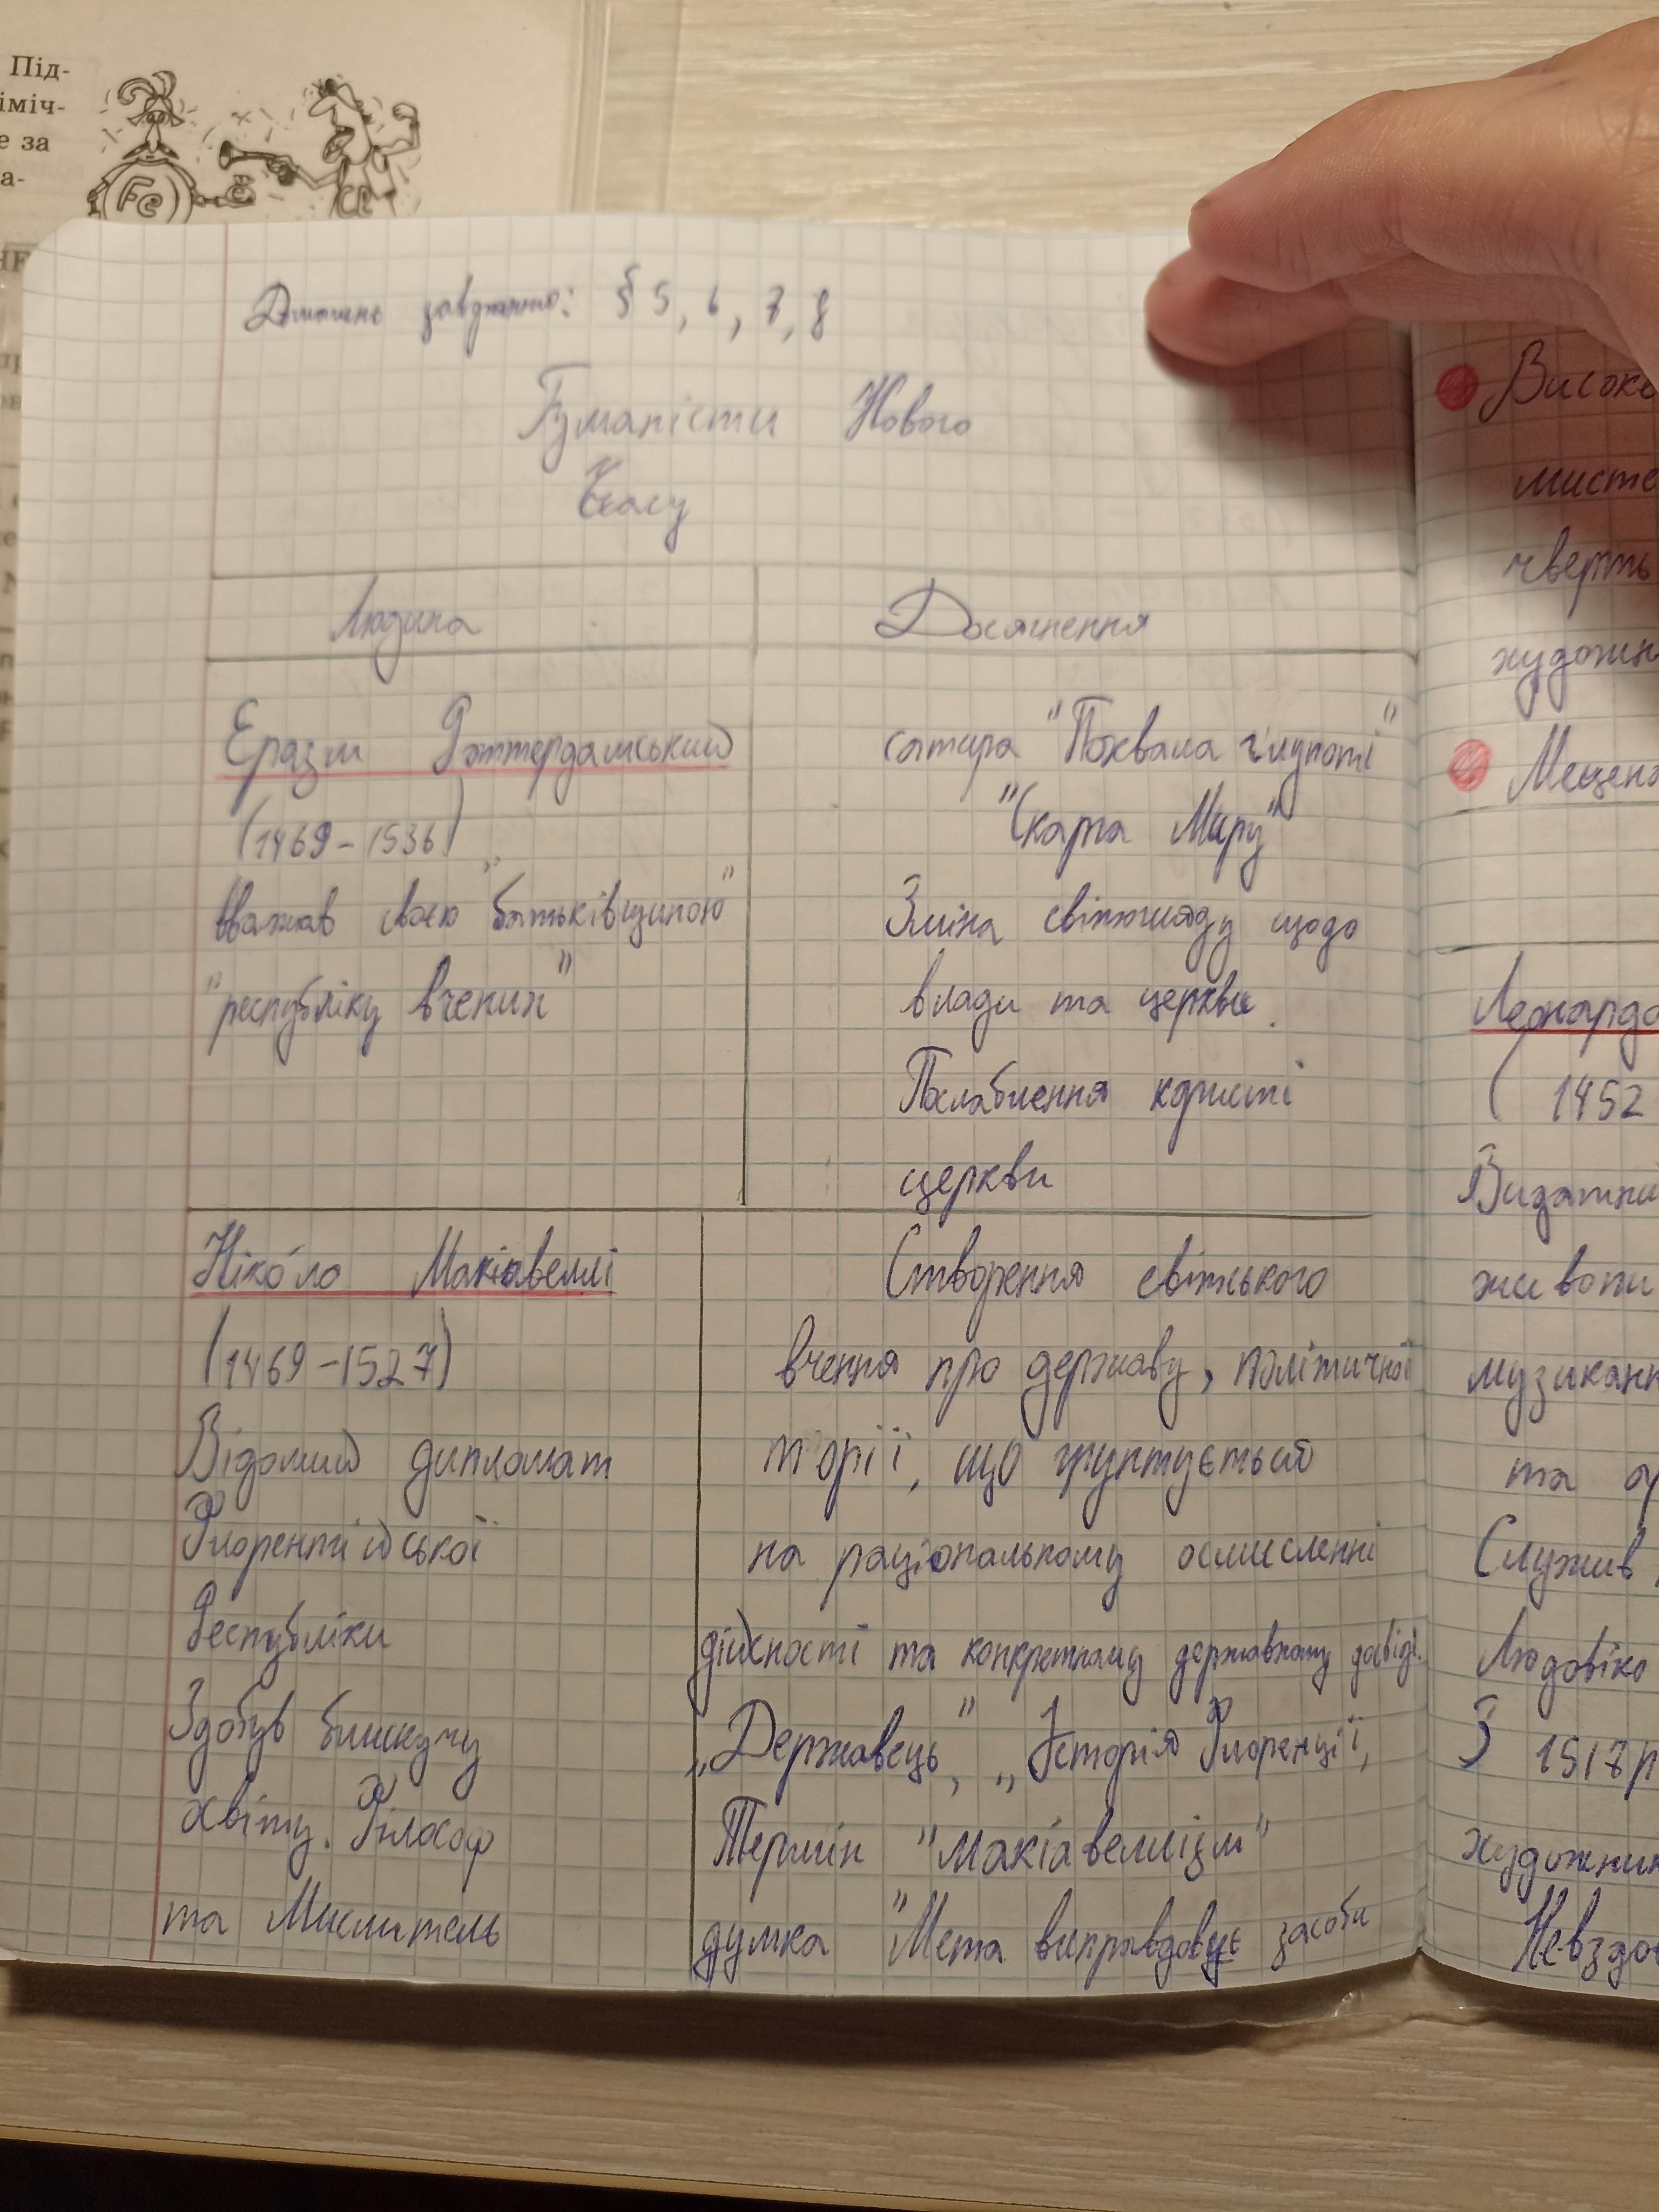 Під-
іміч-
е за
а-
Fe
Cl
Домашнє завдання: § 5, 6, 7, 8
Гуманісти Нового
Часу
Людина
Досягнення
Еразм Роттердамський
(1469-1536)
вважав своєю "батьківщиною"
"республіку вчених"
сатира "Похвала глупоті"
"Скарга Миру"
Зміна світогляду щодо
влади та церкви.
Послаблення користі
церкви
Ніко́ло Макіавеллі
(1469-1527)
Відомий дипломат
Флорентійської
Республіки
Здобув блискучу
освіту. Філософ
та Мислитель
Створення світського
вчення про державу, політичної
т орії, що грунтується
на раціональному осмисленні
дійсності та конкретному державному досвіді.
„Державець", „Історія Флоренції,
Термін "макіавеллізм"
думка "Мета виправдовує засоби
Високе
мисте
чверть
художн
Мецена
Леонардо
( 1452
Видатний
живопи
музикант
та
Служив
Людовіко
З 1517р
художник